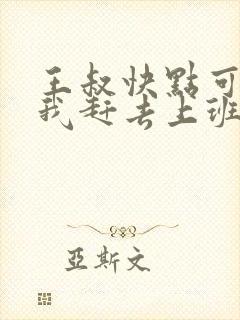 王叔快點可
我赶去上班
亞斯文